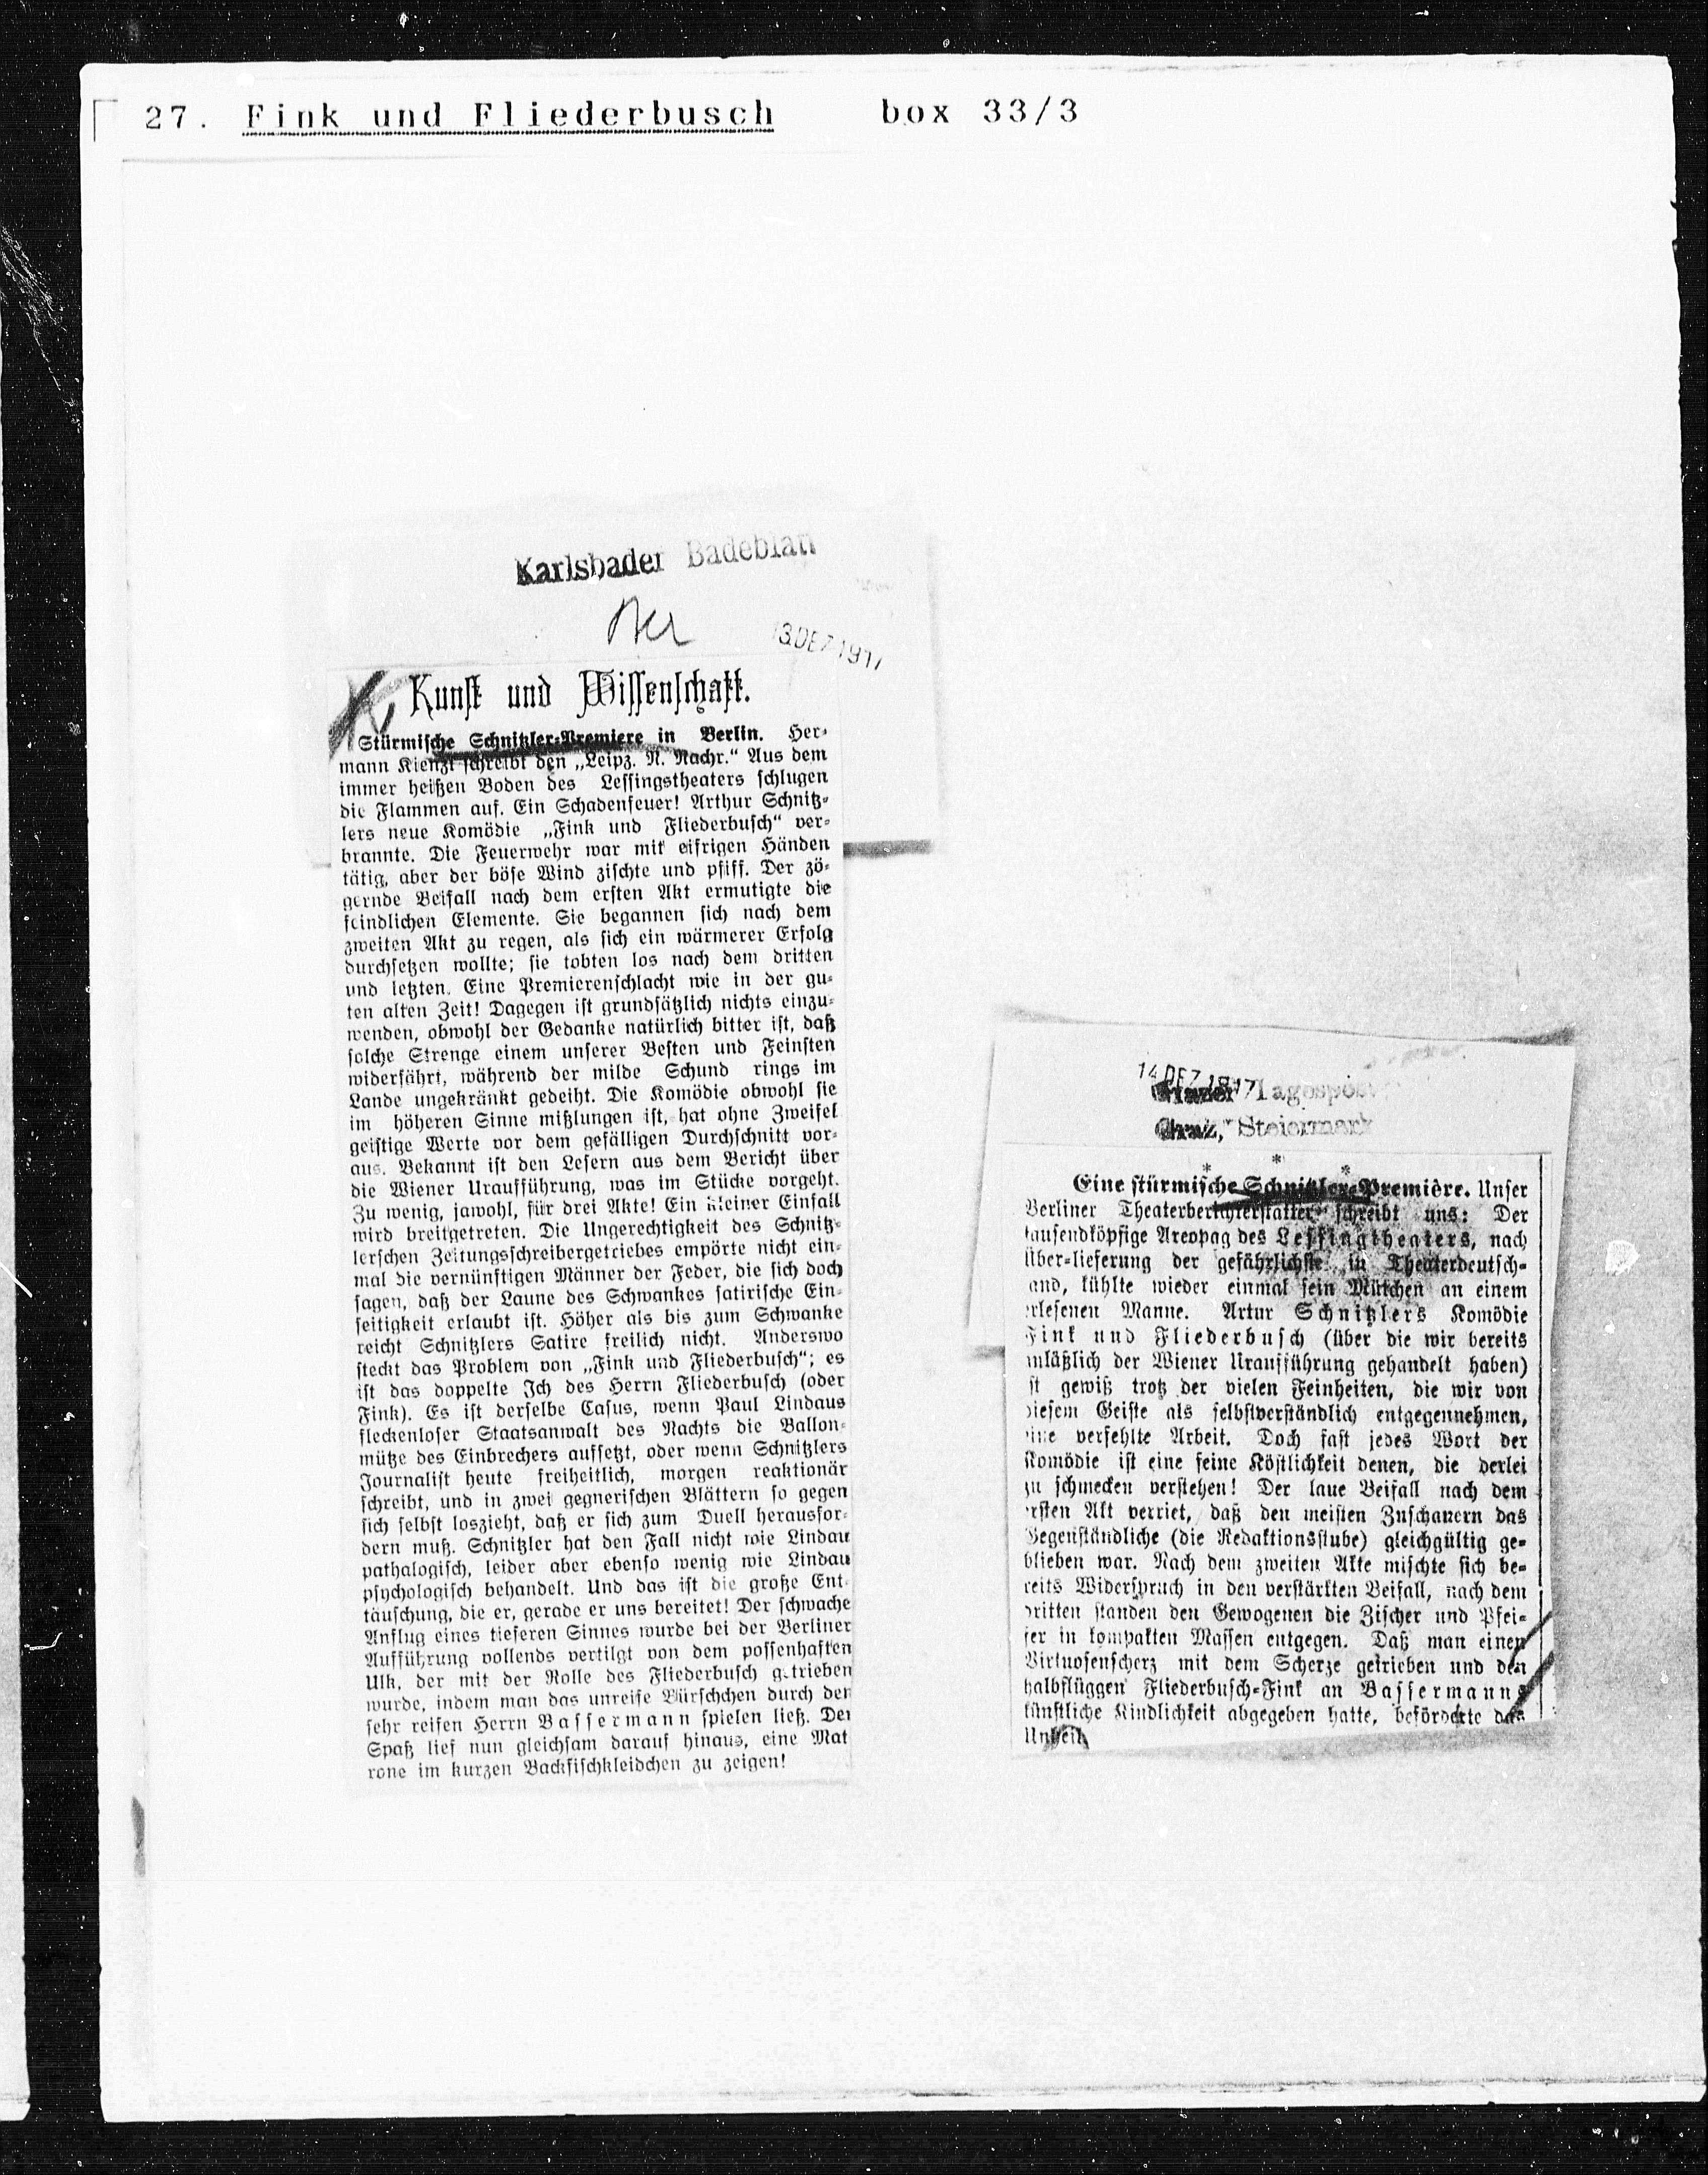 27. Fink und Fliederbusch box 33/3
Karlsbader Badeblatt
13.DEZ 1917
Kunst und Wissenschaft.
Stürmische Schnitzler-Premiere in Berlin. Her-
mann Kienzl schreibt den „Leipz. N. Nachr." Aus dem
immer heißen Boden des Lessingstheaters schlugen
die Flammen auf. Ein Schadenfeuer! Arthur Schnitz-
lers neue Komödie „Fink und Fliederbusch" ver-
brannte. Die Feuerwehr war mit eifrigen Händen
tätig, aber der böse Wind zischte und pfiff. Der zö-
gernde Beifall nach dem ersten Akt ermutigte die
feindlichen Elemente. Sie begannen sich nach dem
zweiten Akt zu regen, als sich ein wärmerer Erfolg
durchsetzen wollte; sie tobten los nach dem dritten
und letzten. Eine Premierenschlacht wie in der gu-
ten alten Zeit! Dagegen ist grundsätzlich nichts einzu-
wenden, obwohl der Gedanke natürlich bitter ist, daß
solche Strenge einem unserer Besten und Feinsten
widerfährt, während der milde Schund rings im
Lande ungekränkt gedeiht. Die Komödie obwohl sie
im höheren Sinne mißlungen ist, hat ohne Zweifel
geistige Werte vor dem gefälligen Durchschnitt vor-
aus. Bekannt ist den Lesern aus dem Bericht über
die Wiener Uraufführung, was im Stücke vorgeht.
Zu wenig, jawohl, für drei Akte! Ein kleiner Einfall
wird breitgetreten. Die Ungerechtigkeit des Schnitz-
lerschen Zeitungsschreibergetriebes empörte nicht ein-
mal die vernünftigen Männer der Feder, die sich doch
sagen, daß der Laune des Schwankes satirische Ein-
seitigkeit erlaubt ist. Höher als bis zum Schwanke
reicht Schnitzlers Satire freilich nicht. Anderswo
steckt das Problem von „Fink und Fliederbusch"; es
ist das doppelte Ich des Herrn Fliederbusch (oder
Fink). Es ist derselbe Casus, wenn Paul Lindaus
fleckenloser Staatsanwalt des Nachts die Ballon-
mütze des Einbrechers aufsetzt, oder wenn Schnitzlers
Journalist heute freiheitlich, morgen reaktionär
schreibt, und in zwei gegnerischen Blättern so gegen
sich selbst loszieht, daß er sich zum Duell herausfor-
dern muß. Schnitzler hat den Fall nicht wie Lindau
pathalogisch, leider aber ebenso wenig wie Lindau
psychologisch behandelt. Und das ist die große Ent-
täuschung, die er, gerade er uns bereitet! Der schwache
Anflug eines tieferen Sinnes wurde bei der Berliner
Aufführung vollends vertilgt von dem possenhaften
Ulk, der mit der Rolle des Fliederbusch getrieben
wurde, indem man das unreife Bürschchen durch den
sehr reifen Herrn Bassermann spielen ließ. Der
Spaß lief nun gleichsam darauf hinaus, eine Mat
rone im kurzen Backfischkleidchen zu zeigen!
14 DEZ 1917
Grazer Tagespost
Graz, Steiermark
* * *
Eine stürmische Schnitzler-Première. Unser
Berliner Theaterberichterstatter schreibt uns: Der
tausendköpfige Areopag des Lessingtheaters, nach
Über-lieferung der gefährlichste in Theaterdeutsch-
and, kühlte wieder einmal sein Mütchen an einem
rlesenen Manne. Artur Schnitzlers Komödie
Fink und Fliederbusch (über die wir bereits
nläßlich der Wiener Uraufführung gehandelt haben)
st gewiß trotz der vielen Feinheiten, die wir von
diesem Geiste als selbstverständlich entgegennehmen,
ine verfehlte Arbeit. Doch fast jedes Wort der
Komödie ist eine feine Köstlichkeit denen, die derlei
zu schmecken verstehen! Der laue Beifall nach dem
rsten Akt verriet, daß den meisten Zuschauern das
Gegenständliche (die Redaktionsstube) gleichgültig ge-
blieben war. Nach dem zweiten Akte mischte sich be-
reits Widerspruch in den verstärkten Beifall, nach dem
dritten standen den Gewogenen die Zischer und Pfei-
fer in kompakten Massen entgegen. Daß man einen
Virtuosenscherz mit dem Scherze getrieben und den
halbflüggen Fliederbusch-Fink an Bassermanns
künstliche Kindlichkeit abgegeben hatte, beförderte das
Unheil.